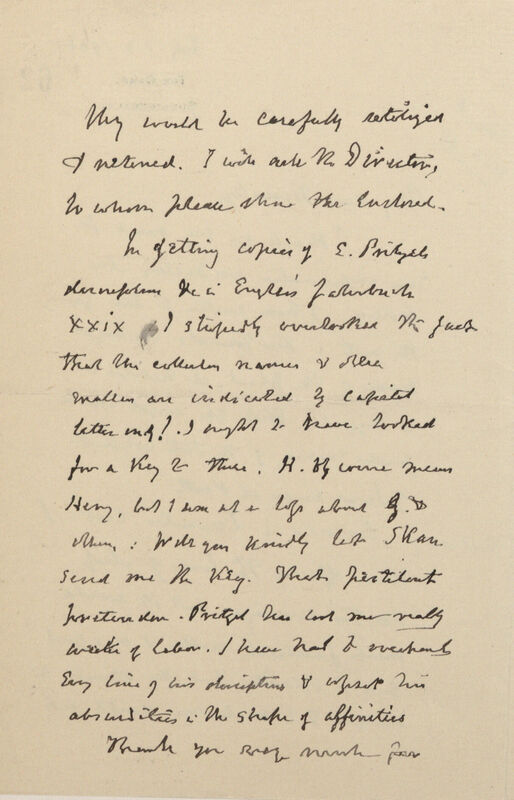 They would be carefully
& returned. I will ask the Director,
to whom please show the enclosed.
In getting copies of E. Pritzel's
descriptions &c in Engler's Jahrbuch
XXIX I stupidly overlooked the fact
that the collectors names & other
matters are indicated by capital
letter only! I ought to have looked
for a key to these. H. of course means
Henry, but I am at a loss about G. &
others: Will you kindly let Skan
send me the key. That pestilent
pretender Pritzel has cost me really
weeks of labor. I have had to overhaul
every line of his descriptions & upset his
absurdities in the shape of affinities
Thank you very much for